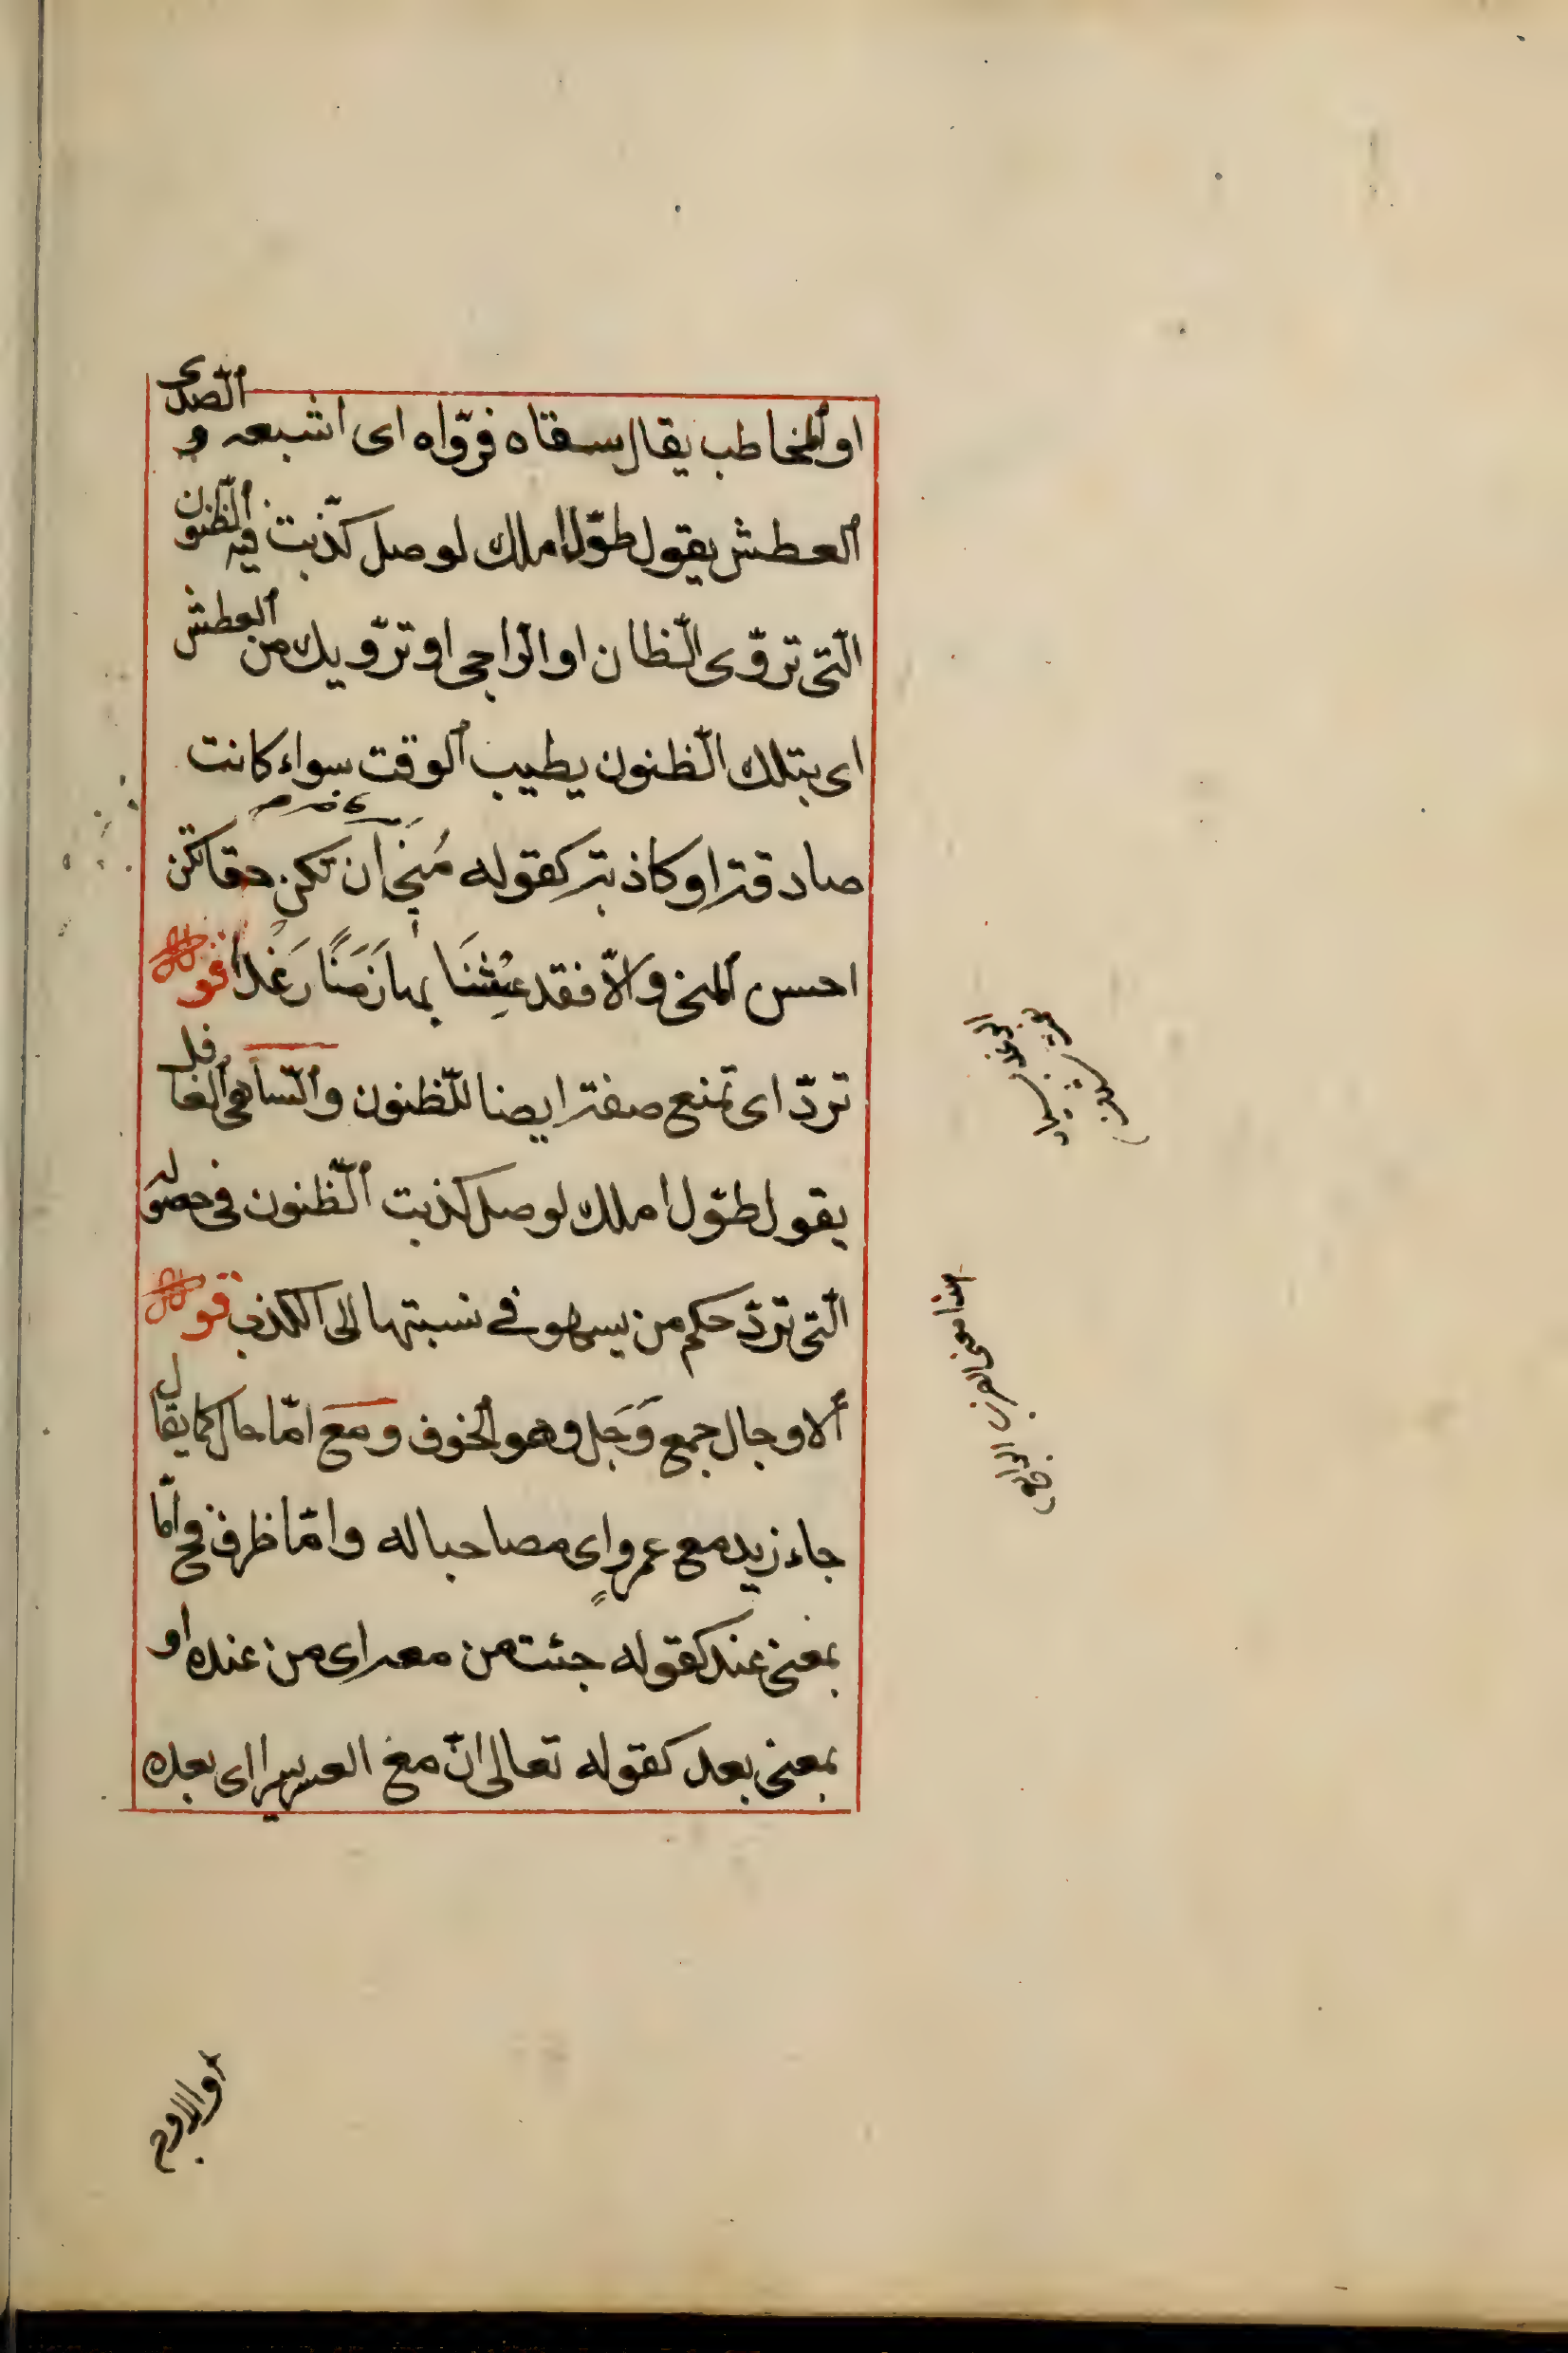 او المخاطب يقال سقاه فروّاه اى اشبعه و الصّدى
العطش يقول طوّل املك لوصل كذّبت فيه الظّنون
الّتى تروّى الظّمان او الرّاجى او تروّيك من العطش
اى بتلك الظّنون يطيب الوقت سواء كانت
صادقة او كاذبة كقوله مُنىً ان تكن حقا تكن
احسن المنى والّا فقد عِشْنَا بها زَمَنًا رَغْدًا قو
تردّ اى تمنع صفة ايضا للظّنون والسّاهى الغافل
يقول طوّل املك لوصل كذبت الظّنون فى حصوله
الّتى تردّ حكم من يسهو فى نسبتها الى الكذب قو
الاوجال جمع وَجَل وهو الخوف ومع امّا حال كما يقال
جاء زيد مع عمروٍ اى مصاحبا له وامّا ظرف فح امّا
بمعنى عند كقوله جئت من معه اى من عنده او
بمعنى بعد كقوله تعالى انّ مع العسر يسرا اى بعده
هذا معنى
او الاوج